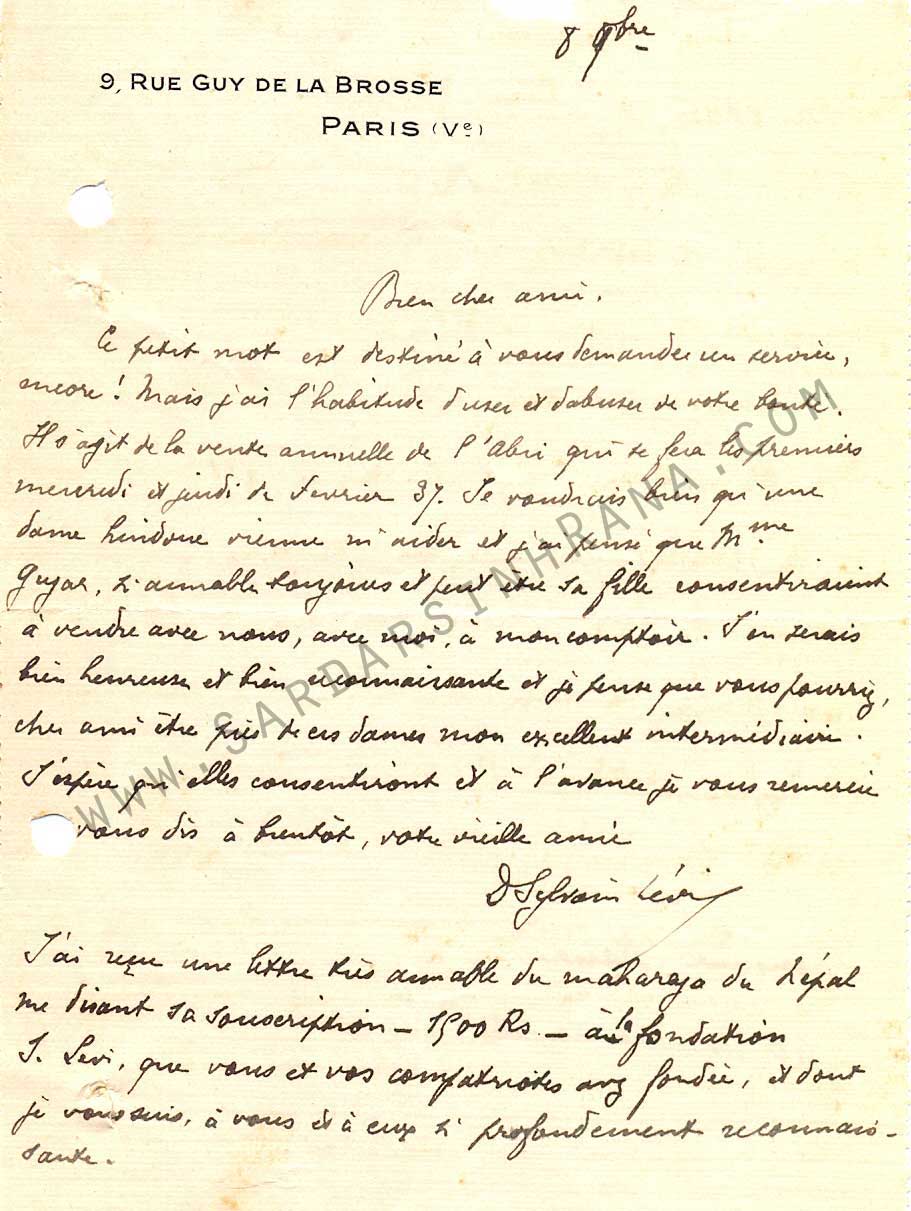 8 9bre
9, RUE GUY DE LA BROSSE
PARIS (Ve)
Bien cher ami.
Ce petit mot est destiné à vous demander un service,
encore! Mais j'ai l'habitude d'user et d'abuser de votre bonté.
Il s'agit de la vente annuelle de l'Abri qui se fera les premiers
mercredi et jeudi de Fevrier 37. Je voudrais bien qu'une
dame hindoue vienne m'aider et j'ai pensé que Mme
Gujar, si aimable toujours et peut être sa fille consentiraient
à vendre avec nous, avec moi, à mon comptoir. J'en serais
bien heureuse et bien reconnaissante et je pense que vous pourriez,
cher ami être près de ces dames mon excellent intermédiaire.
J'espère qu'elles consentiront et à l'avance je vous remercie
vous dis à bientôt, votre vieille amie
D Sylvain Lévi
J'ai reçu une lettre très aimable du maharaja du Népal
me disant sa souscription – 1500 Rs – à la fondation
S. Levi, que vous et vos compatriotes avez fondée, et dont
je vous suis, à vous et à eux si profondement reconnais-
sante.
WWW.SARDARSINHRANA.COM